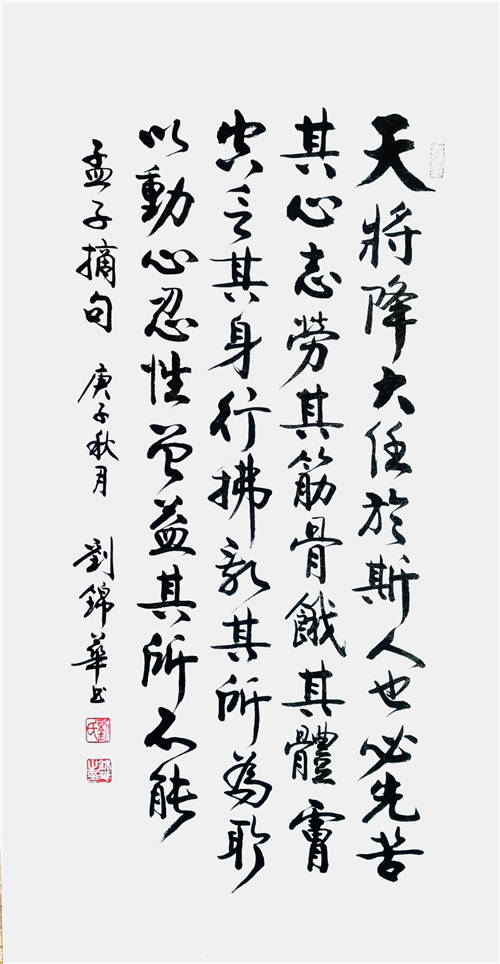 天將降大任於斯人也必先苦
其心志勞其筋骨餓其體膚
空乏其身行拂亂其所為所
以動心忍性曾益其所不能
孟子摘句 庚子秋月 劉錦華書
劉氏